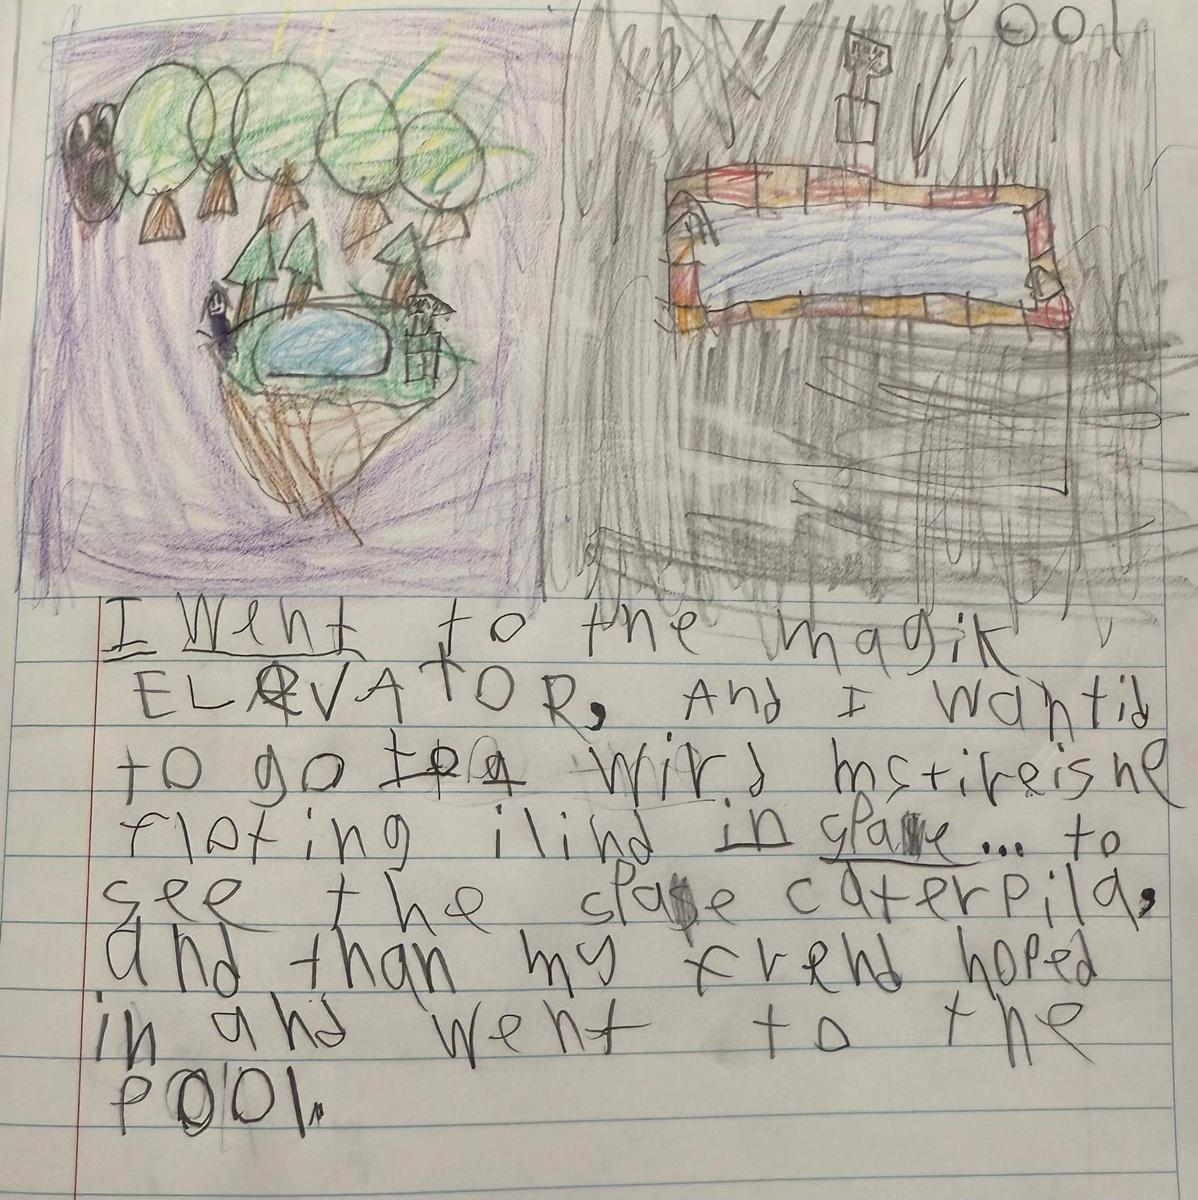 Pool
I Went to the magik
ELEVATOR, And I wantid
to go to a wird mstireisne
floting ilind in space... to
see the space caterpila.
and than my frend hoped
in and went to the
pool.